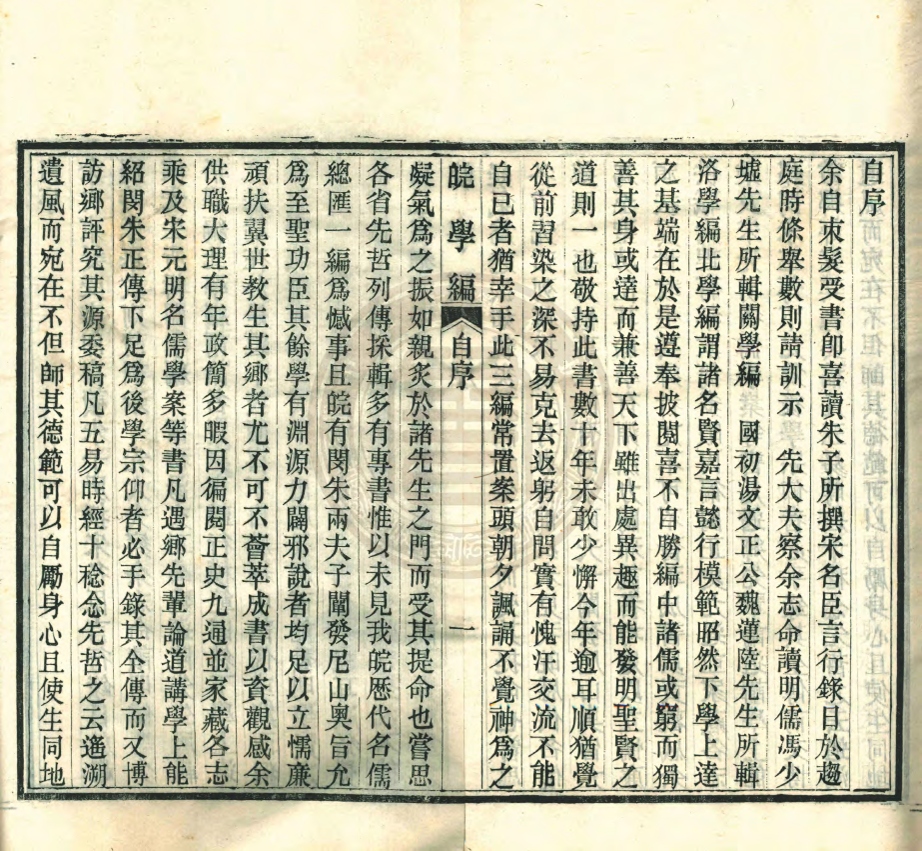 自序
余自束髮受書卽喜讀朱子所撰宋名臣言行錄日於趨
庭時條舉數則請訓示　先大夫察余志命讀明儒馮少
墟先生所輯關學編　國初湯文正公魏蓮陸先生所輯
洛學編北學編謂諸名賢嘉言懿行模範昭然下學上達
之基端在於是遵奉披閱喜不自勝編中諸儒或窮而獨
善其身或達而兼善天下雖出處異趣而能發明聖賢之
道則一也敬持此書數十年未敢少懈今年逾耳順猶覺
從前習染之深不易克去返躬自問實有愧汗交流不能
自已者猶幸手此三編常置案頭朝夕諷誦不覺神爲之
皖學編　自序　一
凝氣爲之振如親炙於諸先生之門而受其提命也嘗思
各省先哲列傳採輯多有專書惟以未見我皖歷代名儒
總匯一編爲憾事且皖有閔朱兩夫子闡發尼山奧旨允
爲至聖功臣其餘學有淵源力闢邪說者均足以立懦廉
頑扶翼世教生其鄉者尤不可不薈萃成書以資觀感余
供職大理有年政簡多暇因徧閱正史九通並家藏各志
乘及宋元明名儒學案等書凡遇鄉先輩論道講學上能
紹閔朱正傳下足爲後學宗仰者必手錄其全傳而又博
訪鄉評究其源委稿凡五易時經十稔念先哲之云遙溯
遺風而宛在不但師其德範可以自勵身心且使生同地